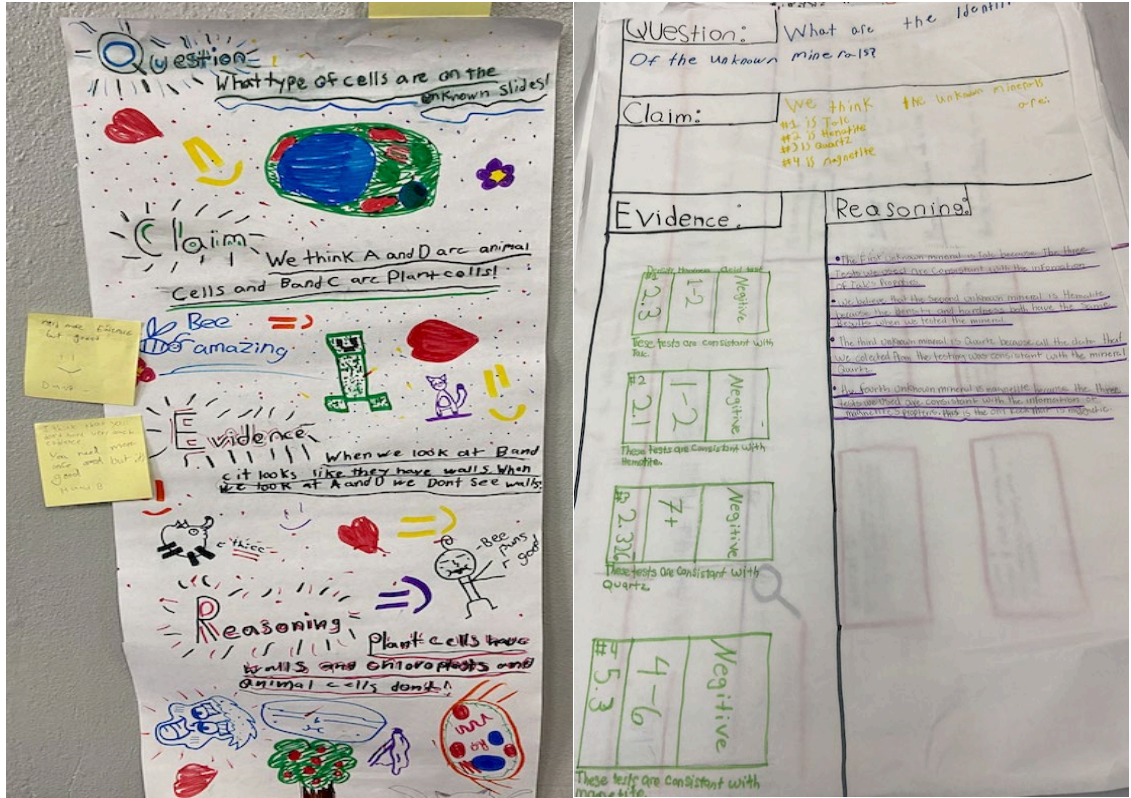 Question
What type of cells are on the
unknown slides!
Claim
We think A and D are animal
Cells and B and C are Plant cells!
Bee
amazing
need more Evidence
but good
Evidence
I think that you
You need more
but it's
good
When we look at B and
c it looks like they have walls. When
we look at A and D we Dont see walls.
three
-Bee
puns
r good
Reasoning
Plant cells have
walls and chloroplasts and
animal cells dont!
Question: What are the Identi
Of the unknown minerals?
Claim: We think the unknown minerals
are:
#1 is Talc
#2 is Hematite
#3 is Quartz
#4 is magnetite
Evidence:
Density Hardness Acid test
2.3 1-2 Negitive
These tests are consistant with
Talc.
#2 2.1 1-2 Negitive
These tests are Consistant with
Hematite.
#3 2.326 7+ Negitive
These tests are consistant with
Quartz
#4 5.3 4-6 Negitive
These tests are consistant with
magnetite.
Reasoning:
• The first unknown mineral is talc because the three
tests we used are consistant with the information
of talc's properties.
• We believe that the second unknown mineral is Hematite
because the density and hardness both have the same
results when we tested the mineral.
• The third unknown mineral is Quartz because all the data that
we collected from the testing was consistent with the mineral
Quartz.
• The fourth unknown mineral is magnetite because the three
tests we used are consistent with the information of
magnetite's properties. this is the only rock that is magnetic.